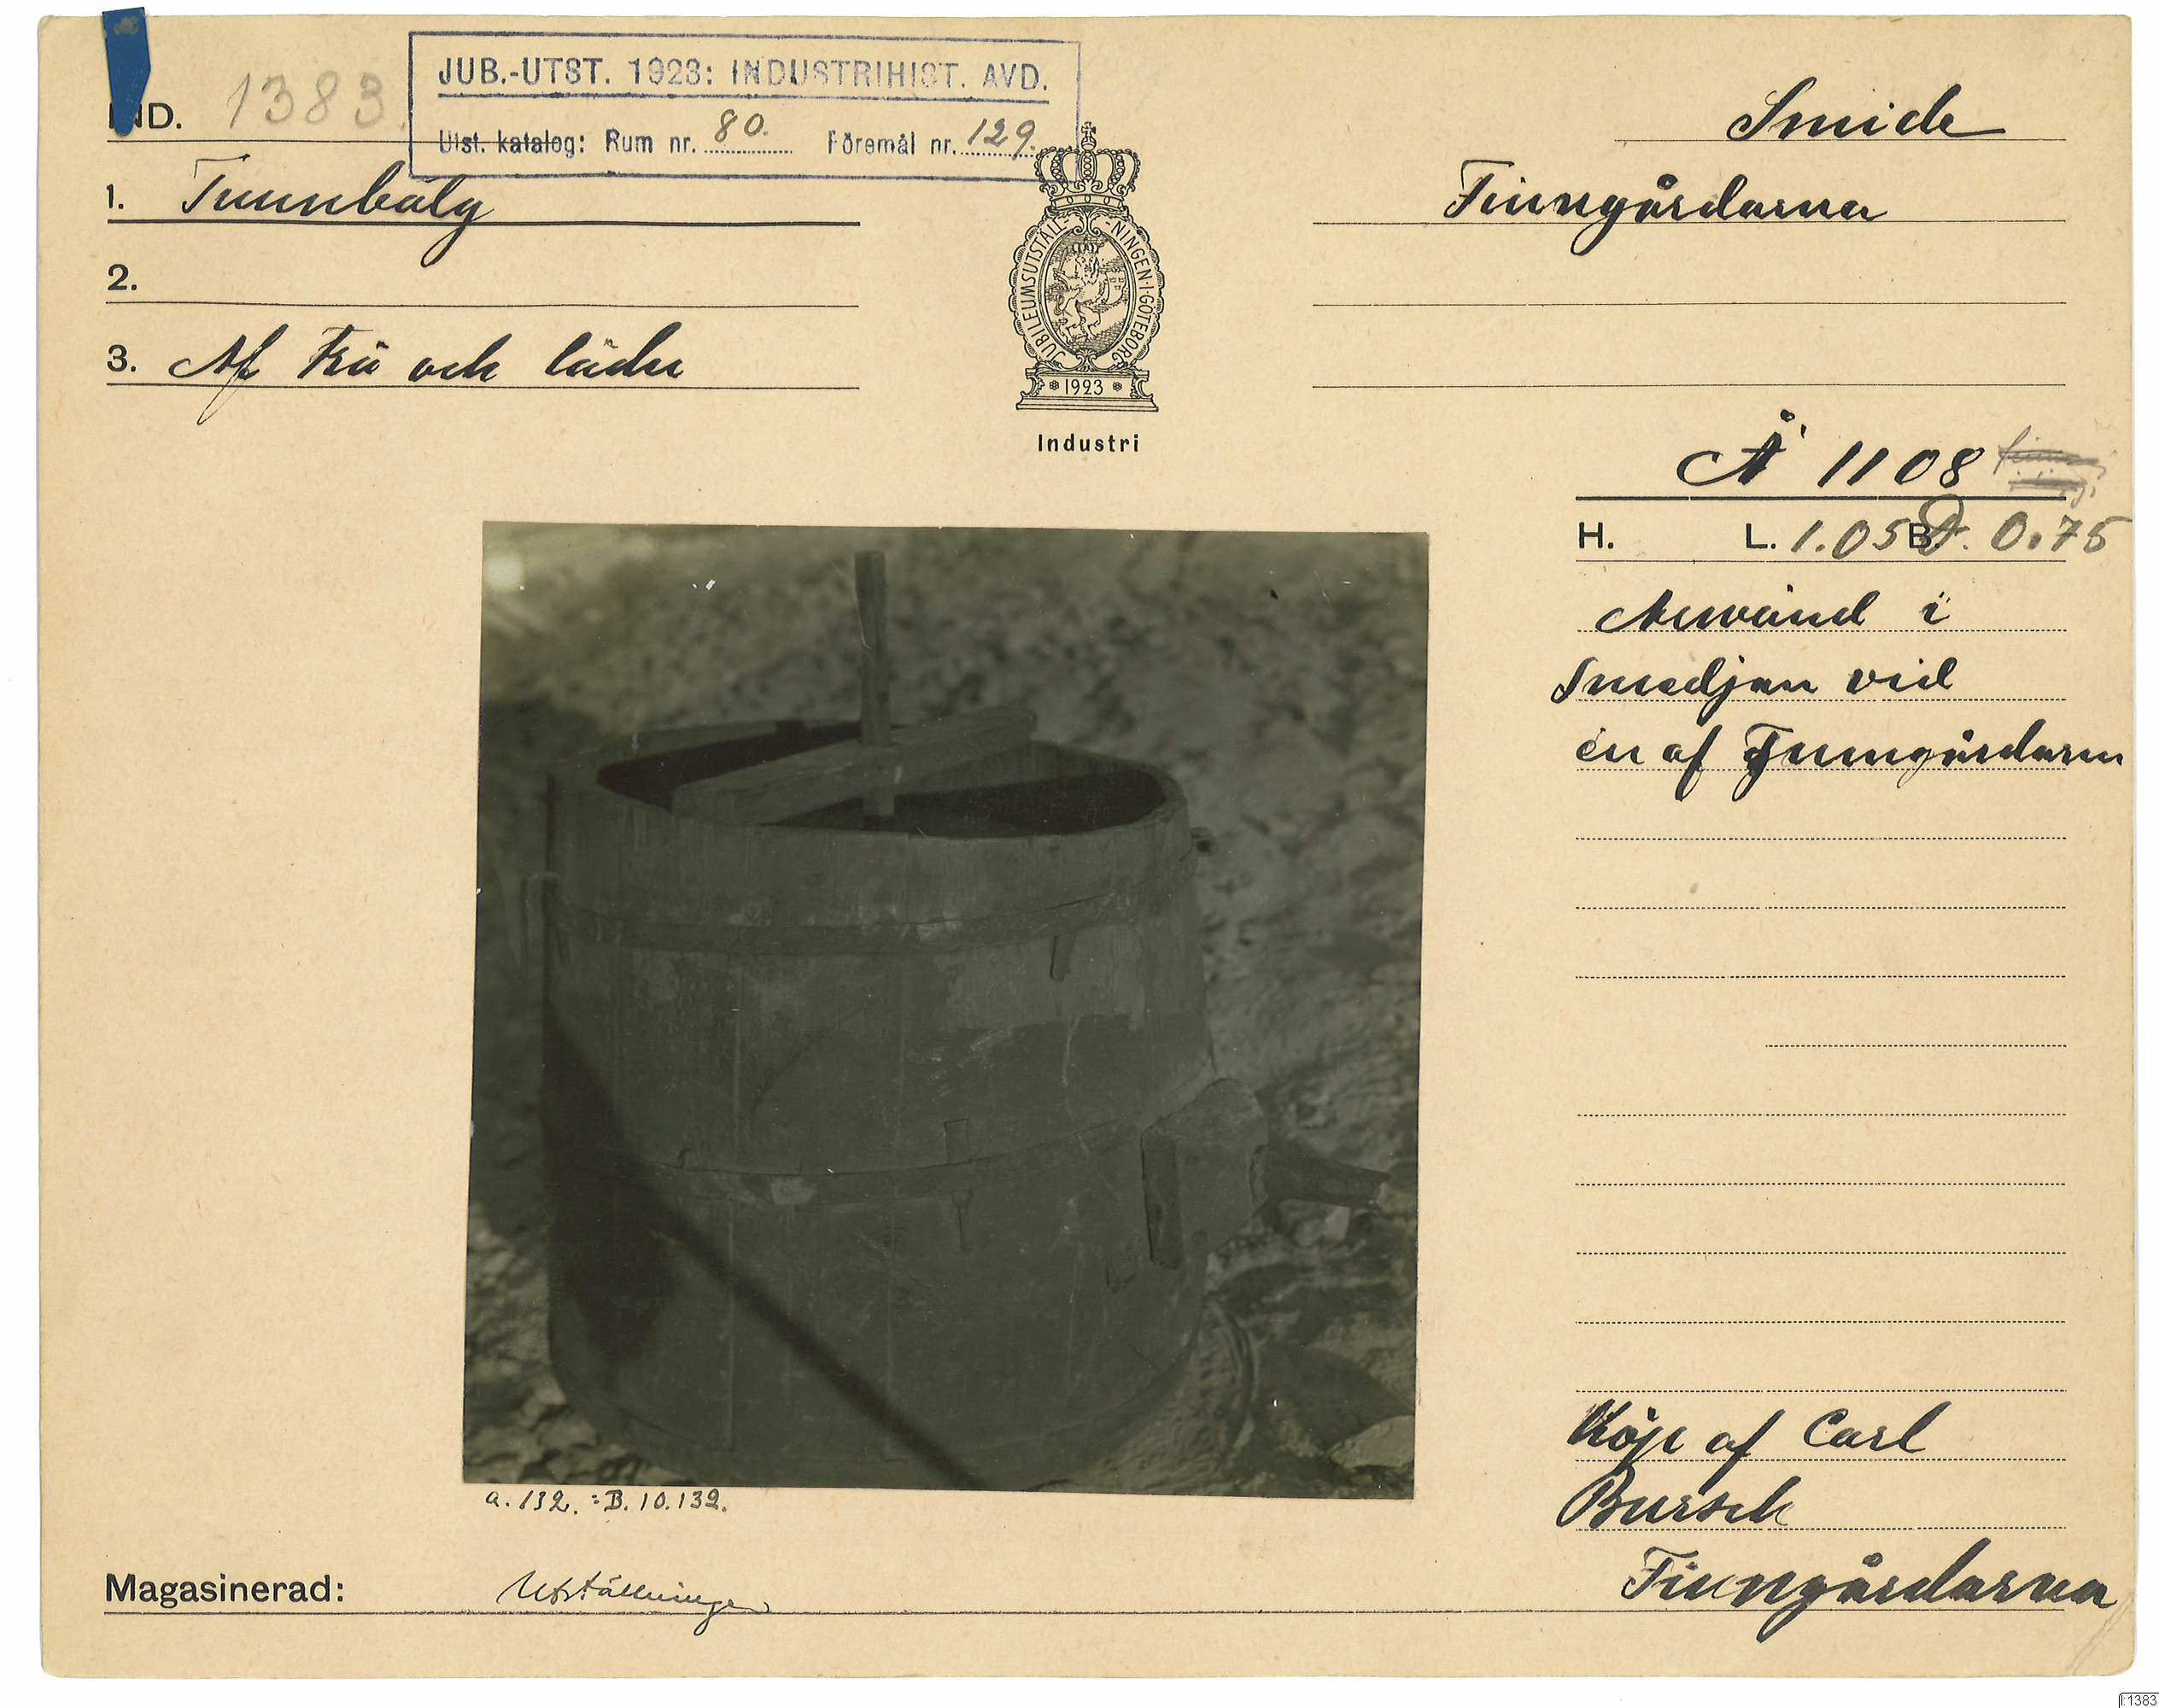 JUB.-UTST. 1923: INDUSTRIHIST. AVD.
Utst. katalog: Rum nr. 80. Föremål nr. 129.
IND. 1383.
Smide
1. Tunnbälg
Finngårdarna
2.
3. Af Trä och läder
JUBILEUMSUTSTÄLLNINGEN·I·GÖTEBORG
1923
Industri
Å 1108
H. L. 1.05 B D. 0.75
Använd i
Smedjan vid
en af Finngårdarna
Köpt af Carl
Bursch
Finngårdarna
a. 132. = B. 10. 132.
Magasinerad: Utställningen
I:1383